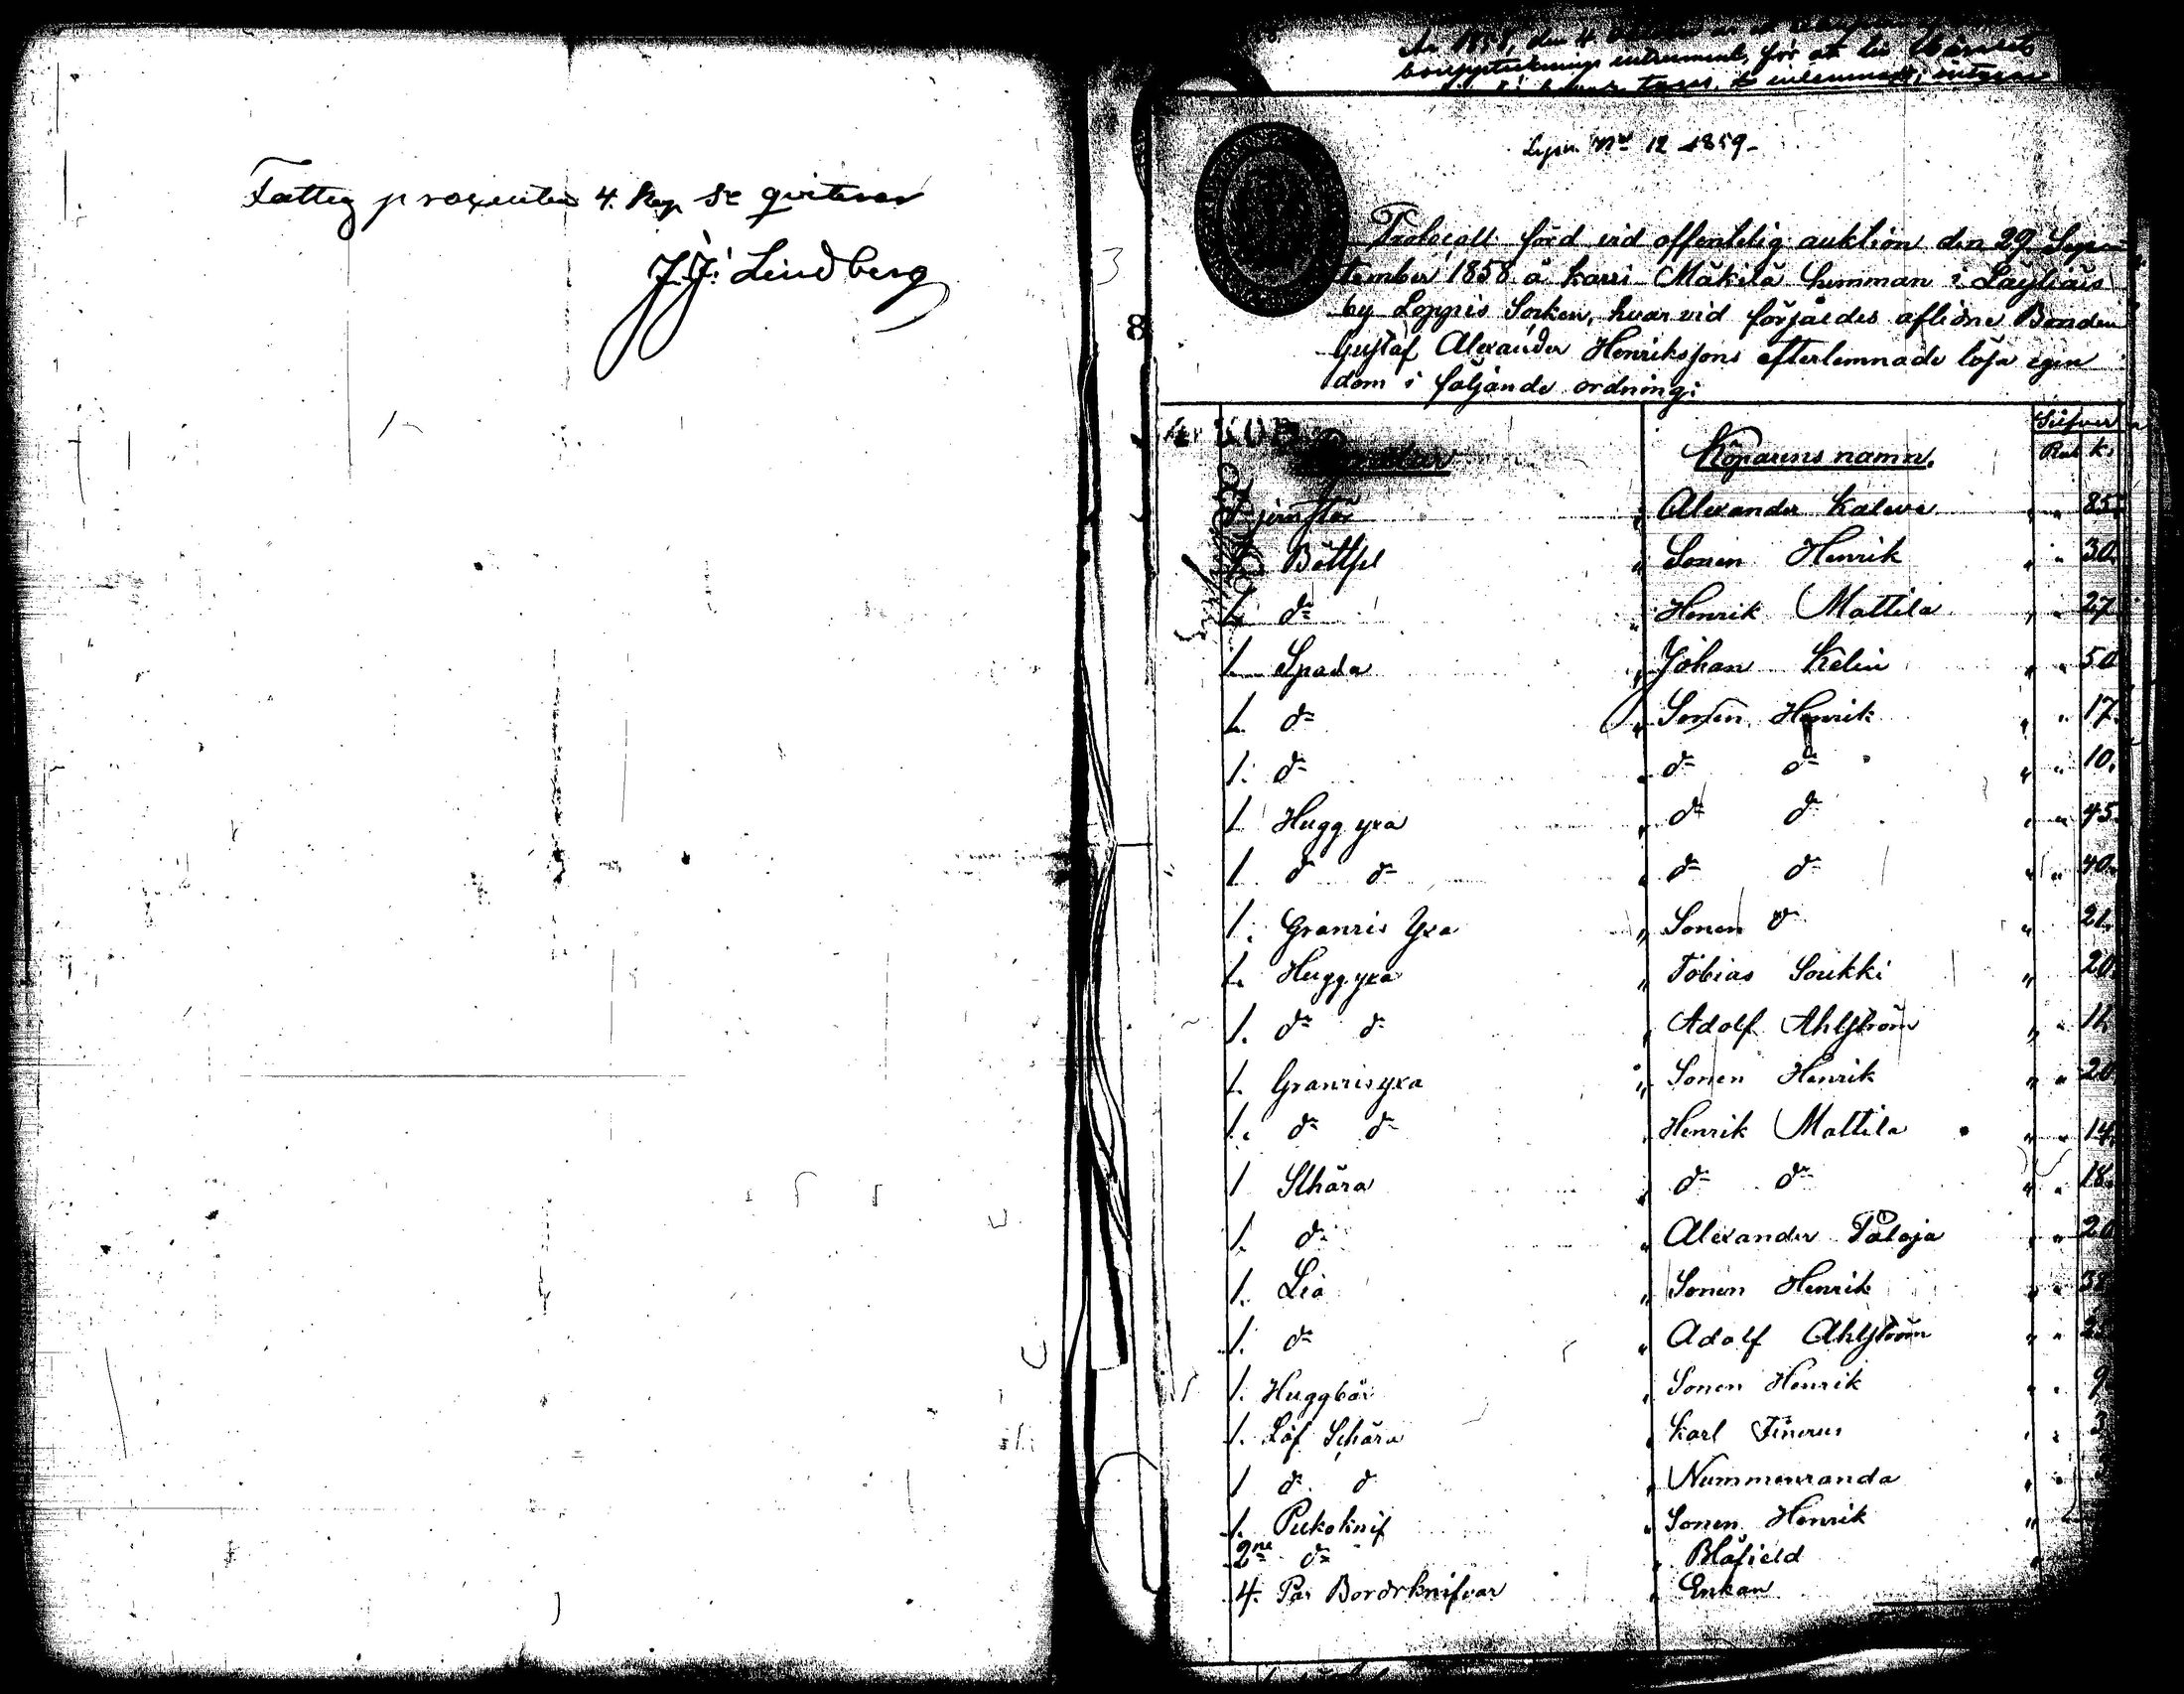 Fattig procenten 4. Kop Sr qviteras
J. J. Lindberg
8
År 1858, den 4
bouppteknings instrument, för att
Lysn. No 12 1859-
Protocoll förd vid offentelig auktion den 29 Sep-
tember 1858 å Karri Mäkilä hemman i Läyliäis
by Loppis Socken, hvar vid försåldes aflidne Bonden
Gustaf Alexander Henrikssons efterlemnade lösa egen
dom i följande ordning:
Köparens namn. Silfver
Rub k.
Alexander Kaleva " " 85.
1. Böttsel " Sonen Henrik " " 30.
1. do " Henrik Mattila " " 27
1. Spada " Johan Kelin " " 50
1. do " Sonen Henrik " " 17.
1. do " do do " " 10.
1. Hugg yxa " do do " " 45.
1. do do " do do " " 40.
1. Granris Yxa " Sonen do " 21.
1. Hugg yxa " Tobias Soukki " 20.
1. do do " Adolf Ahlström " " 14
1. Granris yxa " Sonen Henrik " " 20.
1. do do " Henrik Mattila " " 14.
1 Skära " do do " " 18.
1. do " Alexander Paloja " " 20
1. Lia " Sonen Henrik " " 38
1. do " Adolf Ahlström " "
1. Huggbår " Sonen Henrik " " 9
1. Löf Schära " Karl " " 3
1 do do " Nummenranda " "
1. Pukoknif " Sonen Henrik "
2ne do " Blåfield "
4. Par Bordsknifvar " Enkan